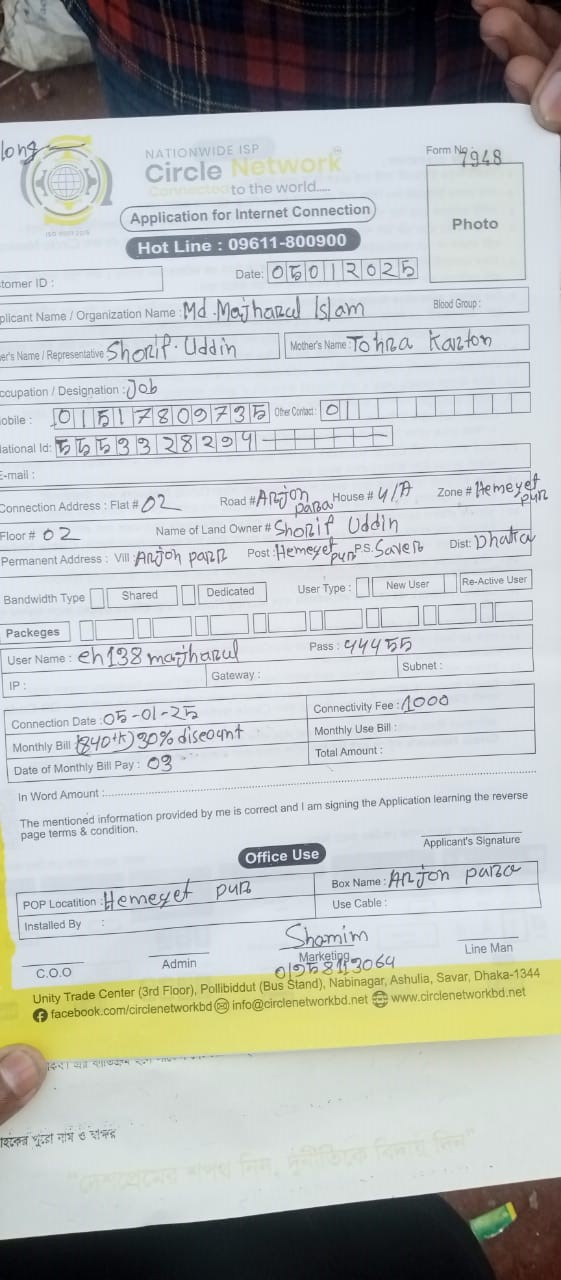 long
NATIONWIDE ISP
Circle Network
Connected to the world.....
ISO 9001:2015
Form No 7948
Application for Internet Connection
Photo
Hot Line : 09611-800900
tomer ID :
Date: 05012025
plicant Name / Organization Name : Md. Majharul Islam Blood Group :
er's Name / Representative Shorif. Uddin Mother's Name : Tohra Karton
ccupation / Designation : Job
obile : 01517809735 Other Contact : 0
ational Id: 5553328294
E-mail :
Connection Address : Flat # 02 Road # Arjon para House # 4/A Zone # Hemeyet pur
Floor # 02 Name of Land Owner # Shorif Uddin
Permanent Address : Vill Arjon para Post : Hemeyet pur P.S. Saver Dist: Dhaka
Bandwidth Type Shared Dedicated User Type : New User Re-Active User
Packeges
User Name : ch138majharul Pass : 44455
IP : Gateway : Subnet :
Connection Date : 05-01-25 Connectivity Fee : 1000
Monthly Bill (840tk) 30% discount Monthly Use Bill :
Date of Monthly Bill Pay : 03 Total Amount :
In Word Amount :
The mentioned information provided by me is correct and I am signing the Application learning the reverse
page terms & condition.
Applicant's Signature
Office Use
POP Locatition : Hemeyet pur Box Name : Arjon para
Installed By : Use Cable :
Shamim
C.O.O Admin Marketing Line Man
01958113064
Unity Trade Center (3rd Floor), Pollibiddut (Bus Stand), Nabinagar, Ashulia, Savar, Dhaka-1344
facebook.com/circlenetworkbd info@circlenetworkbd.net www.circlenetworkbd.net
নাম ও স্বাক্ষর
"দেশপ্রেমের শপথ নিন, দুর্নীতিকে বিদায় দিন"